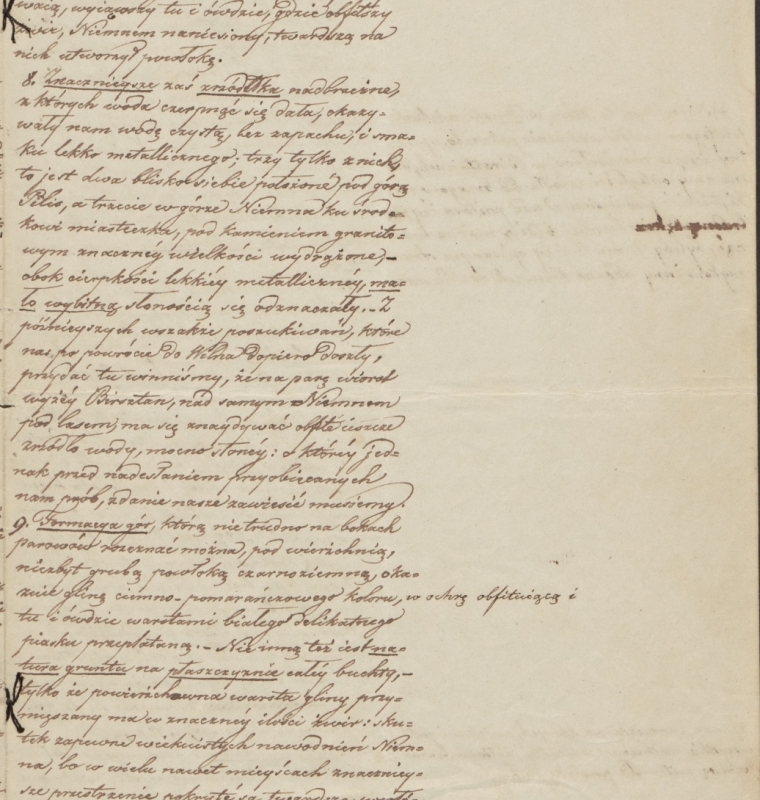 wacią, wyiąwszy tu i ówdzie, gdzie obfitszy
żwir, Niemnem naniesiony, twardszą na
nich utworzył powłokę.
8. Znacznieysze zaś zrzódełka nadbrzeżne,
z których woda czerpnąć się dała, okazy-
wały nam wodę czystą, bez zapachu, i sma-
ku lekko metallicznego; trzy tylko z nich,
to jest dwa blisko siebie położone pod górą
Pilis, a trzecie w górze Niemna ku środ-
kowi miasteczka, pod kamieniem granito-
wym znaczney wielkości wydrążone, -
obok cierpkości lekkiéy metalliczney, ma-
ło wybitną słonością się odznaczały. - Z
późnieyszych wszakże poszukiwań, które
nas po powrócie do Wilna dopiero doszły,
przydać tu winniśmy, że na parę wiorst
wyżéy Birsztan, nad samym Niemnem
pod lasem, ma się znaydywać obfite ieszcze
zrzódło wody, mocno słonéy: o któréy jed-
nak przed nadesłaniem przyobiecanych
nam prób, zdanie nasze zawiesić musiemy.
9. Formacya gór, którą nie trudno na bokach
parowów rozeznać można, pod wierzchnią,
niezbyt grubą powłoką czarnoziemną, oka-
zuie glinę ciemno-pomarańczowego koloru, w ochrę obfituiącą i
tu i ówdzie warstami białego delikatnego
piasku przeplataną. - Nie inną też iest na-
tura gruntu na płaszczyznie całéy buchty, -
tylko że powierzchowna warsta gliny przy-
mięszany ma w znacznéy ilości żwir: sku-
tek zapewne wiekuistych nawodnień Niem-
na, bo w wielu nawet mieyscach znaczniey-
sze przestrzenie pokryte są